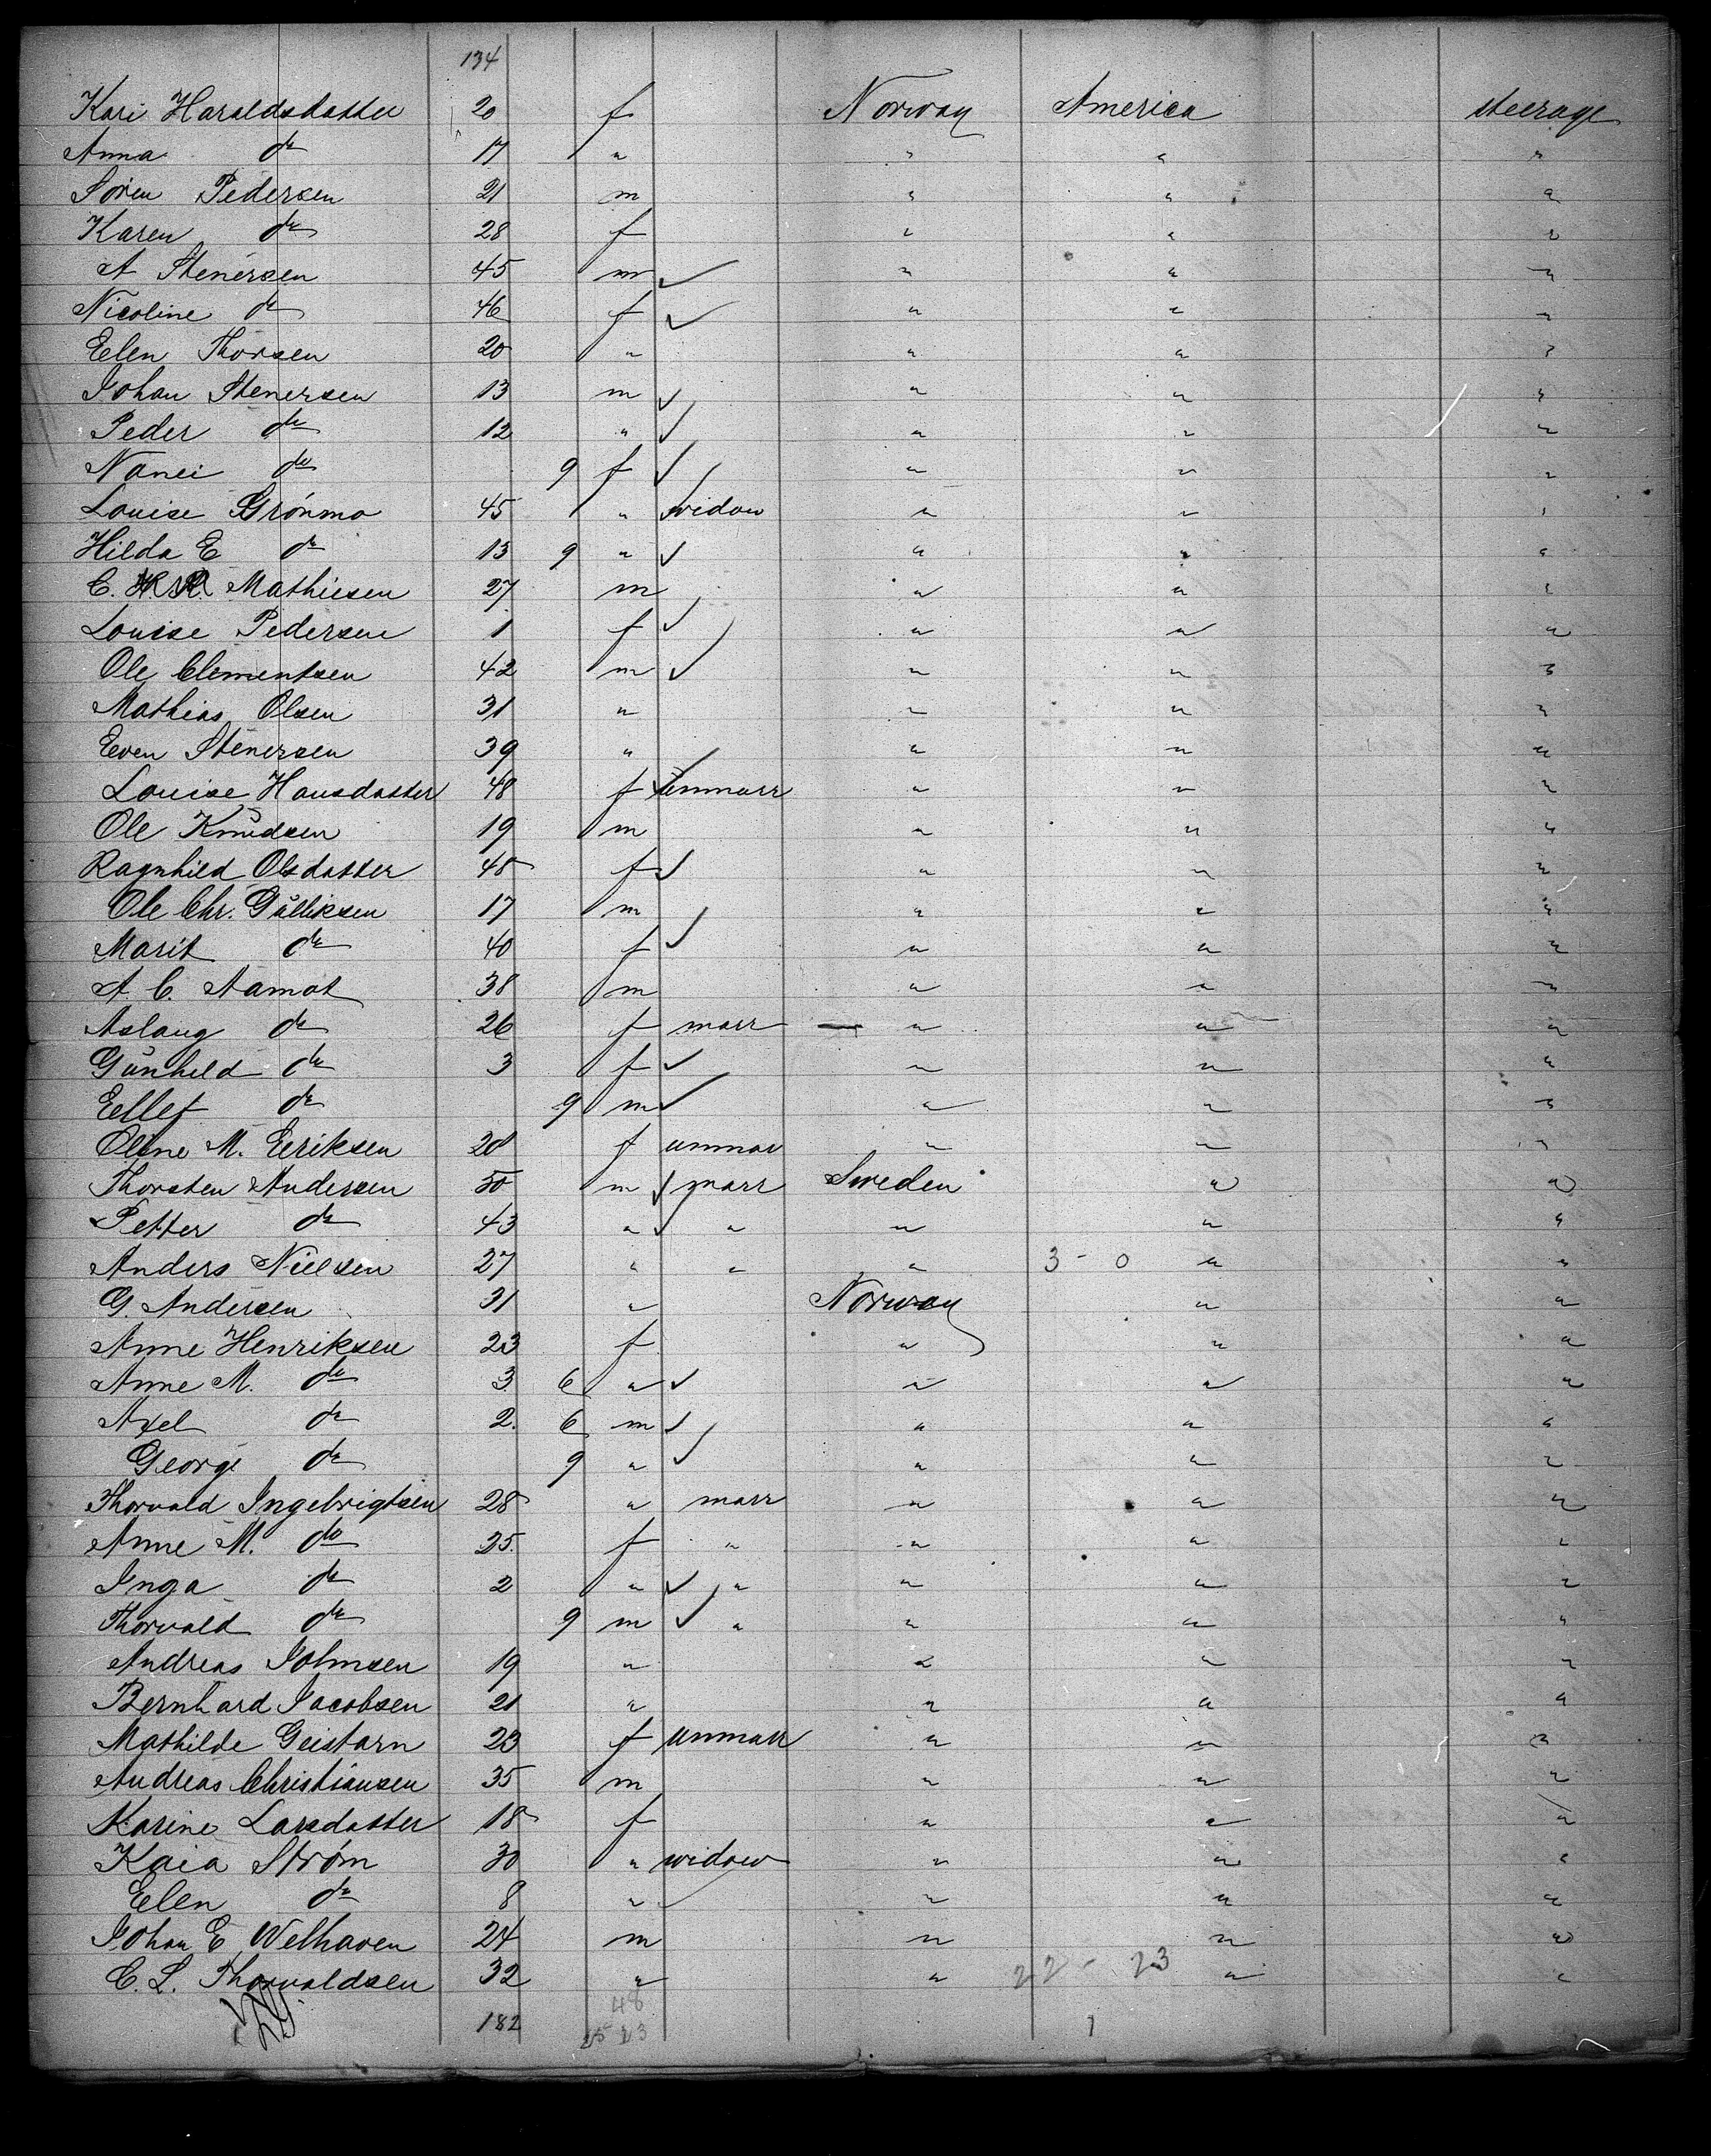 134
Kari Haraldsdatter 20 f Norway America steerage
Anna do 17 " " " "
Sören Pedersen 21 m " " "
Karen do 28 f " " "
A Stenersen 45 m ✓ " " "
Nicoline do 46 f ✓ " " "
Elen Thorsen 20 " " " "
Johan Stenersen 13 m ✓ " " "
Peder do 12 " ✓ " " "
Nanci do 9 f ✓ " " "
Louise Grónmo 45 " widow " " "
Hilda E do 13 9 " ✓ " " "
C. Mathiesen 27 m " " "
Louise Pedersen 1 f ✓ " " "
Ole Clementsen 42 m ✓ " " "
Mathias Olsen 31 " " " "
Even Stenersen 39 " " " "
Louise Hansdatter 48 f ✓ unmarr " " "
Ole Knudsen 19 m " " "
Ragnhild Olsdatter 48 f ✓ " " "
Ole Chr. Gulliksen 17 m " " "
Marit do 40 f ✓ " " "
A C. Aamot 38 m " " "
Aslaug do 26 f marr " " "
Gunhild do 3 f ✓ " " "
Ellef do 9 m ✓ " " "
Oline M. Eriksen 20 f unmar " " "
Thorsten Andersen 50 m ✓ marr Sweden " "
Petter do 43 " ✓ " " " "
Anders Nielsen 27 " " " 3 - 0 " "
G. Andersen 31 " Norway " "
Anne Henriksen 23 f " " "
Anne M. do 3 6 " ✓ " " "
Axel do 2. 6 m ✓ " " "
George do 9 " ✓ " " "
Thorvald Ingebrigtsen 28 " marr " " "
Anne M. do 25. f " " " "
Inga do 2 " ✓ " " " "
Thorvald do 9 m ✓ " " " "
Andreas Johnsen 19 " " " "
Bernhard Jacobsen 21 " " " "
Mathilde Geistarn 23 f unmarr " " "
Andreas Christiansen 35 m " " "
Karine Larsdatter 18 f " " "
Kaia Strøm 30 " widow " " "
Elen do 8 " ✓ " " "
Johan E Welhaven 24 m " " "
C. L. Thorvaldsen 32 " " 22 - 23 " "
48
182 25 23 1